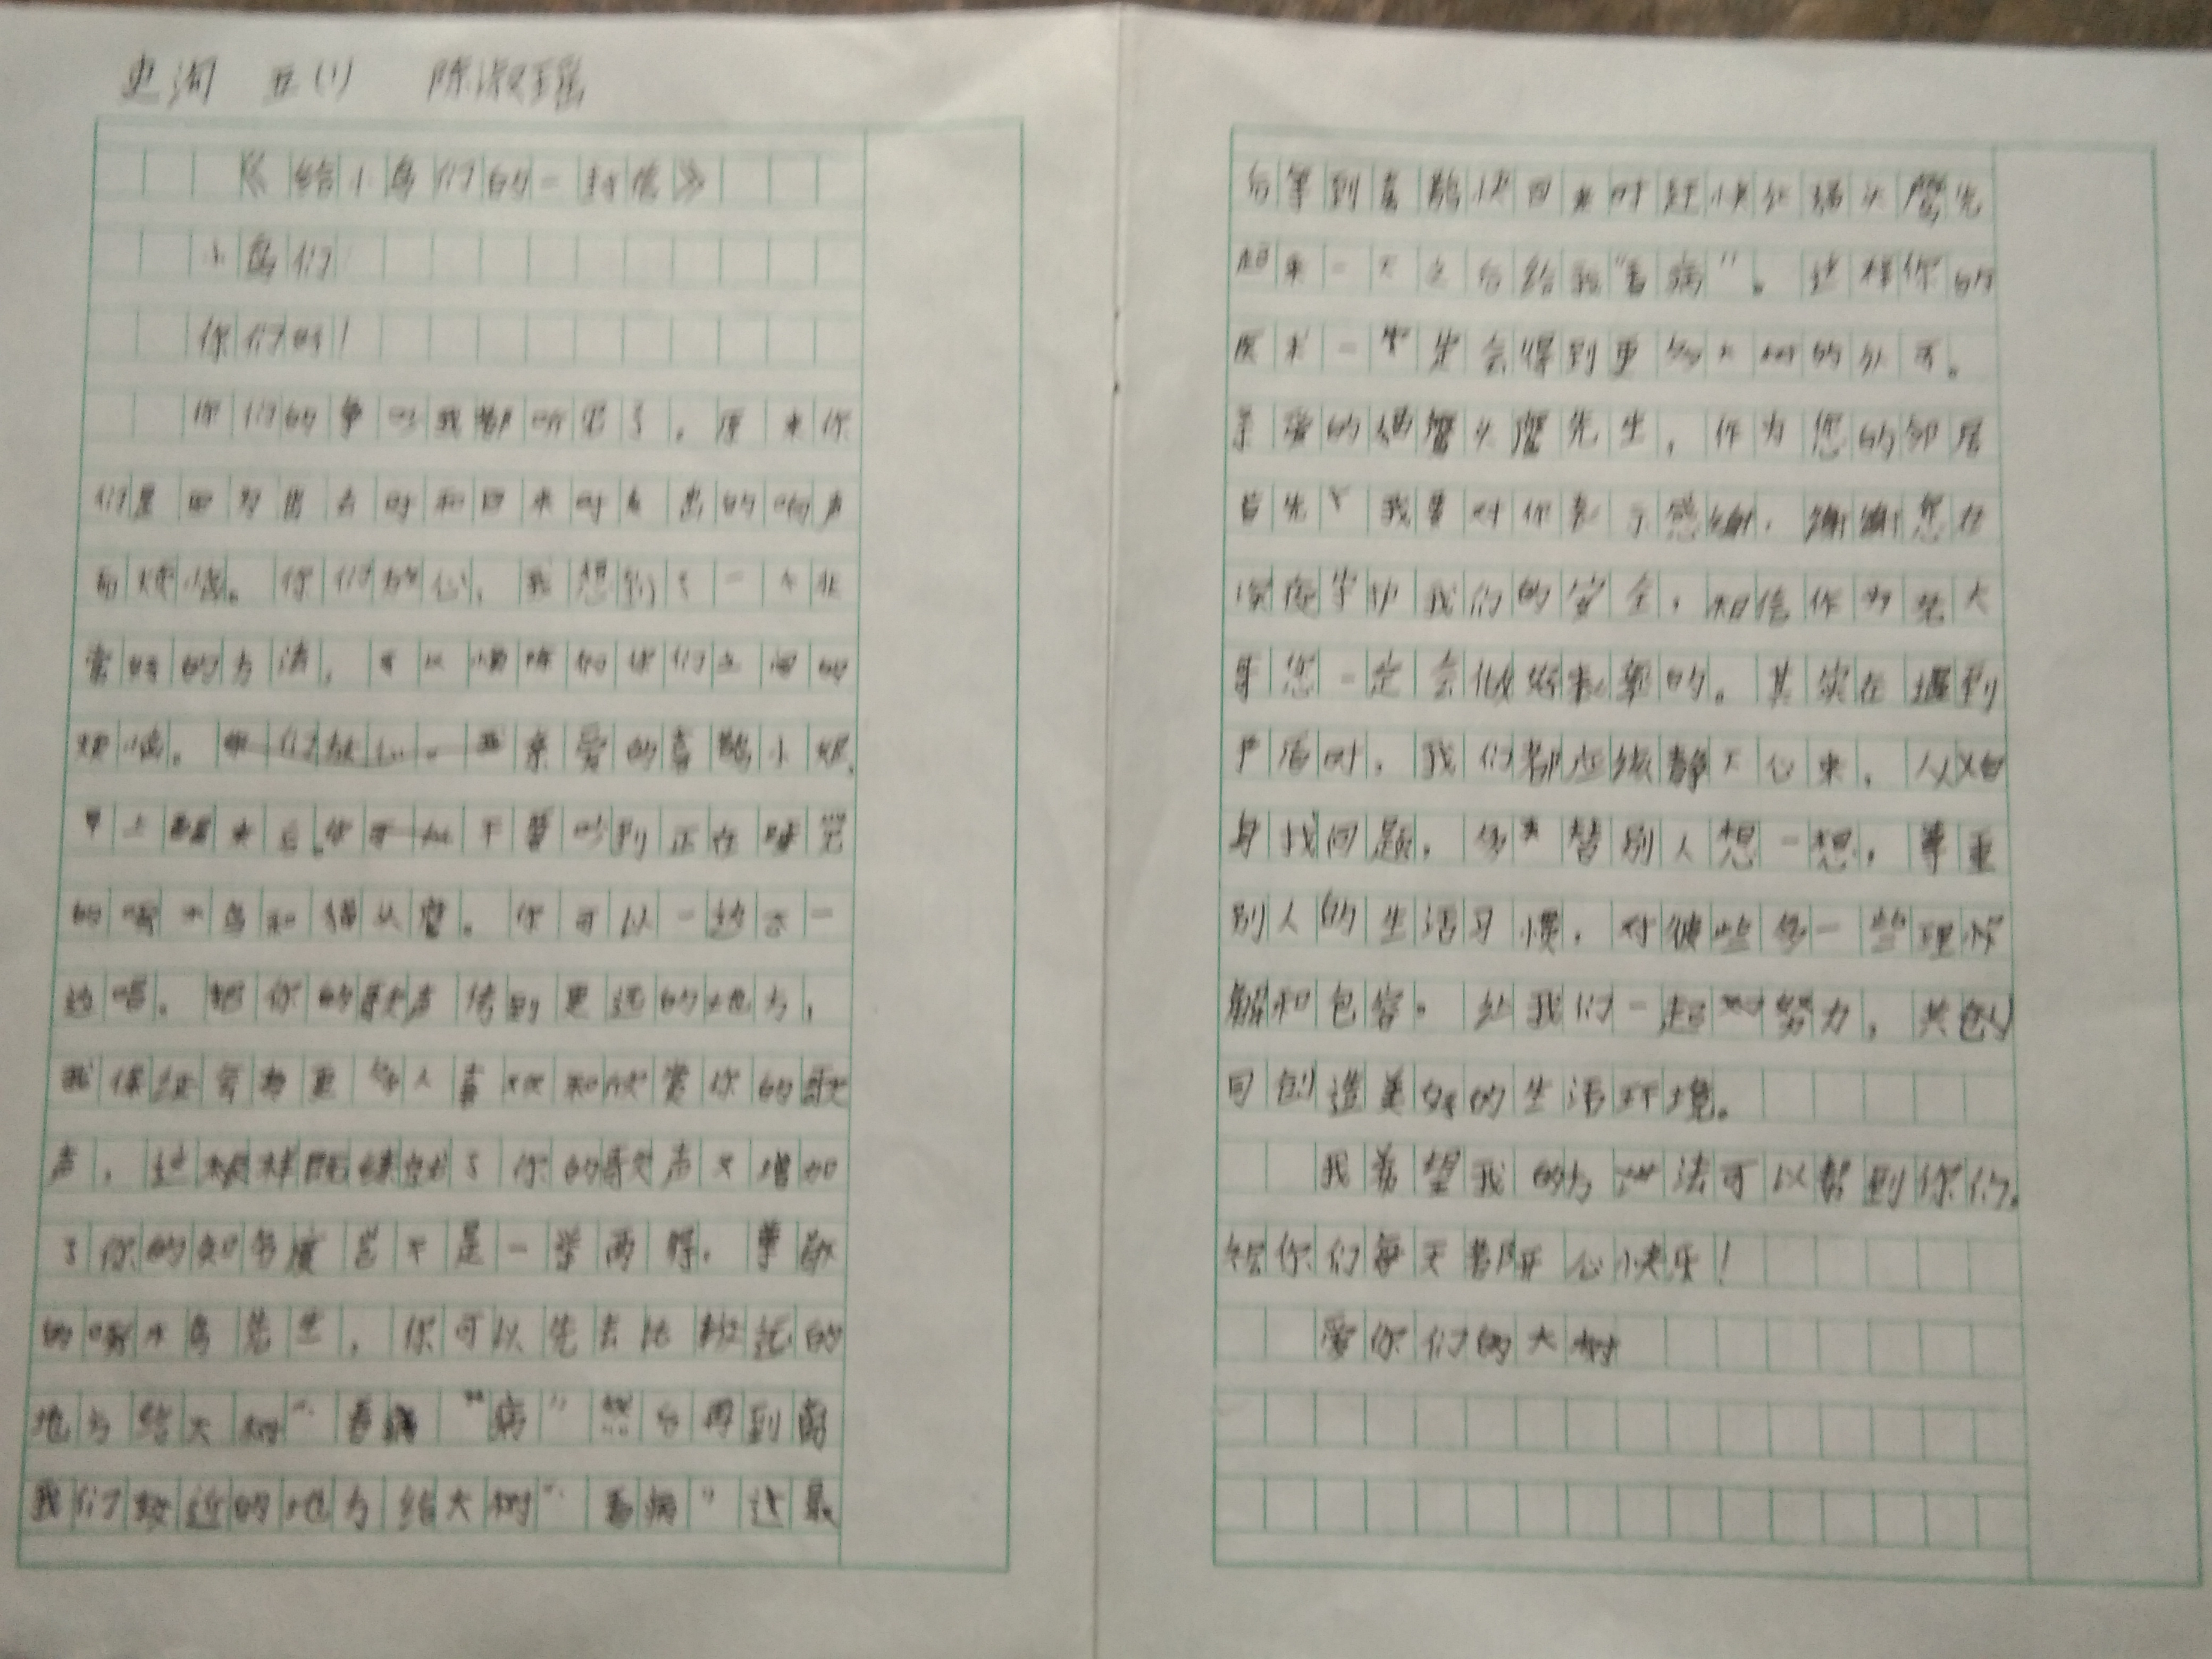 史河 五(1) 陈淑瑶
《给小鸟们的一封信》
小鸟们
你们好!
你们的争吵我都听见了,原来你
们是因为出去时和回来时发出的响声
而烦恼。你们放心,我想到了一个非
常好的方法,可以消除你们之间的
烦恼。亲爱的喜鹊小姐,
早上醒来后,你不要吵到正在睡觉
的啄木鸟和猫头鹰。你可以一边飞一
边唱。把你的歌声传到更远的地方,
我保证会有更多人喜欢和欣赏你的歌
声,这样既练就了你的歌声又增加
了你的知名度岂不是一举两得。尊敬
的啄木鸟先生,你可以先去比较远的
地方给大树“看病”然后再到离
我们较近的地方给大树“看病”这最
后等到喜鹊快回来时赶快让猫头鹰先
起来一天之后给我“看病”。这样你的
医术一定会得到更多大树的认可。
亲爱的猫头鹰先生,作为您的邻居
首先我要对你表示感谢,谢谢您在
深夜守护我们的安全,相信作为老大
哥您一定会做好表率的。其实在遇到
矛盾时,我们都应该静下心来,从自
身找问题,多替别人想一想,尊重
别人的生活习惯,对彼此多一些理
解和包容。让我们一起努力,共
同创造美好的生活环境。
我希望我的方法可以帮到你们。
祝你们每天都开心快乐!
爱你们的大树